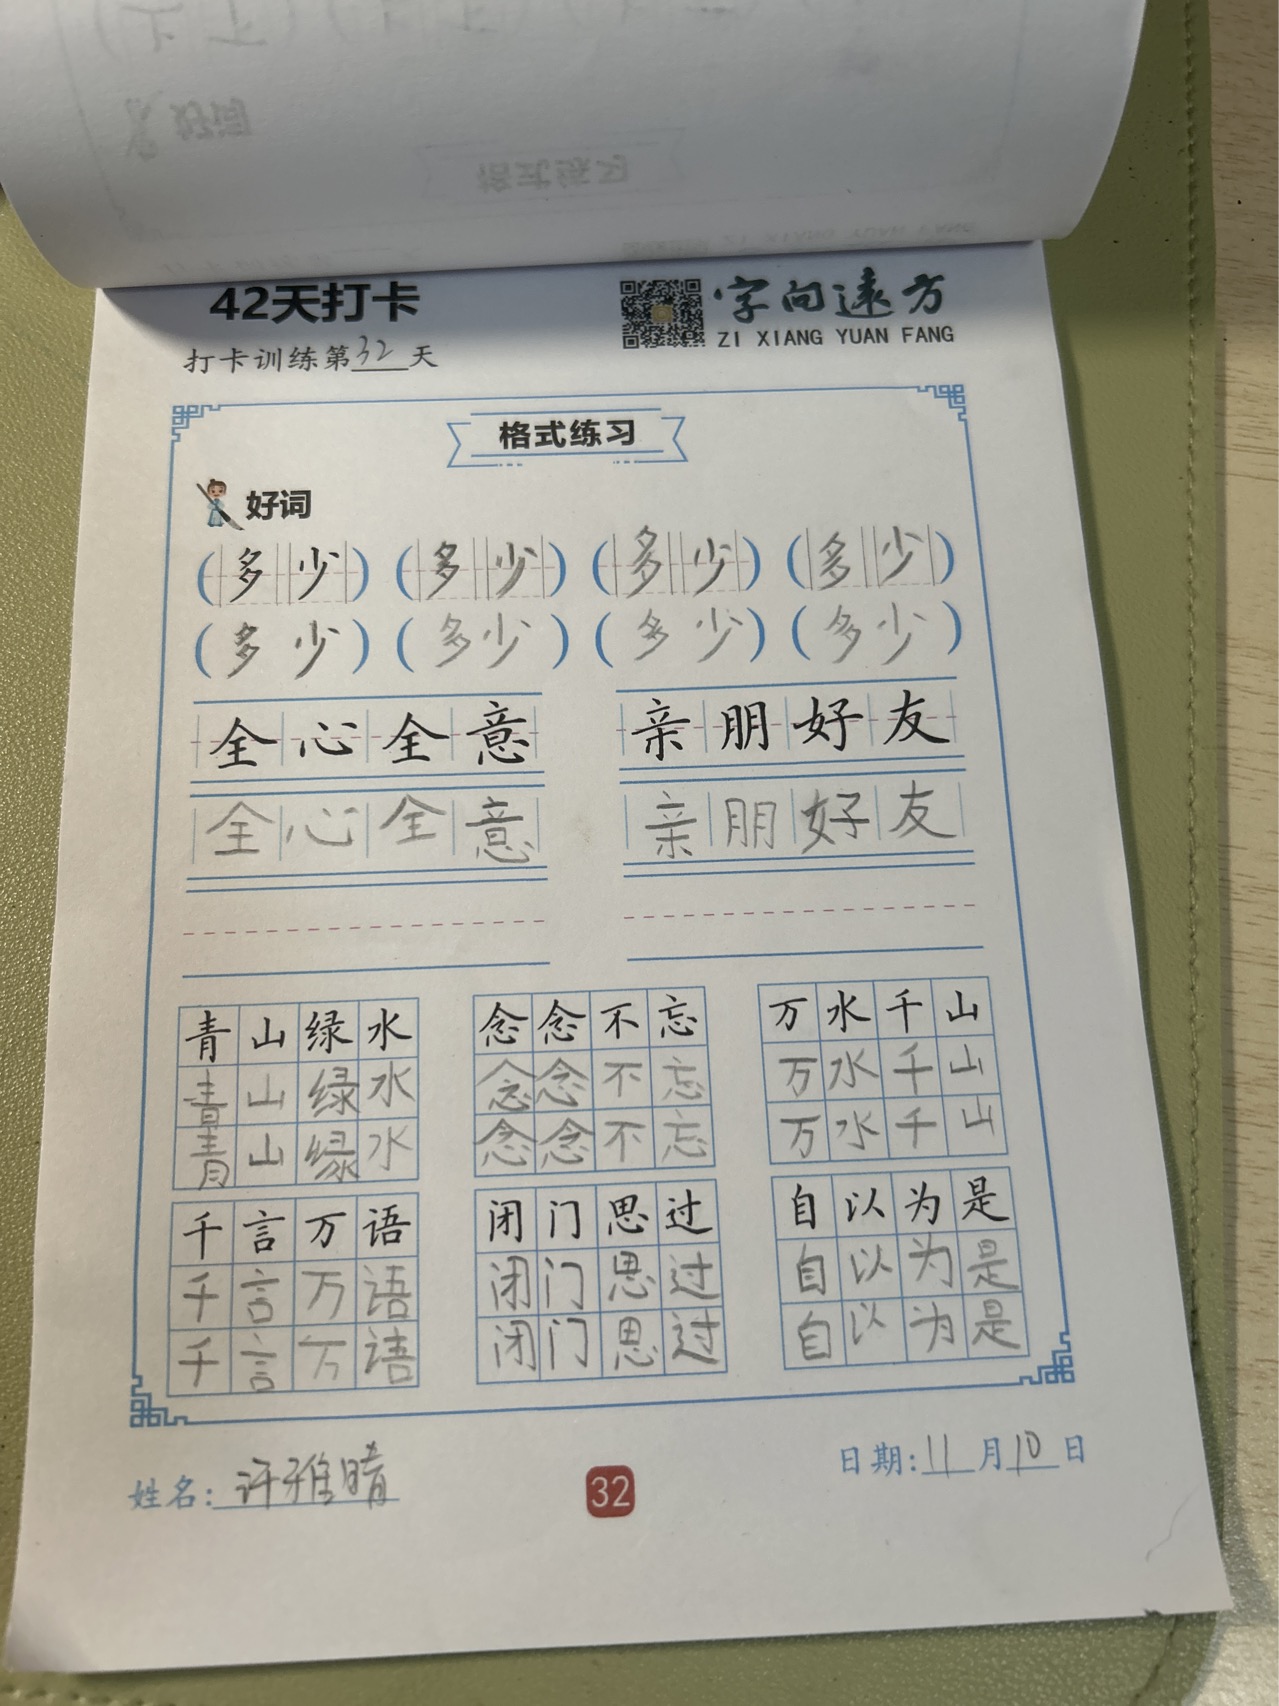 42天打卡
字向远方
ZI XIANG YUAN FANG
打卡训练第32天
格式练习
好词
(多少) (多少) (多少) (多少)
(多少) (多少) (多少) (多少)
全心全意 亲朋好友
全心全意 亲朋好友
青山绿水 念念不忘 万水千山
青山绿水 念念不忘 万水千山
青山绿水 念念不忘 万水千山
千言万语 闭门思过 自以为是
千言万语 闭门思过 自以为是
千言万语 闭门思过 自以为是
姓名: 许雅晴
32
日期: 11月10日